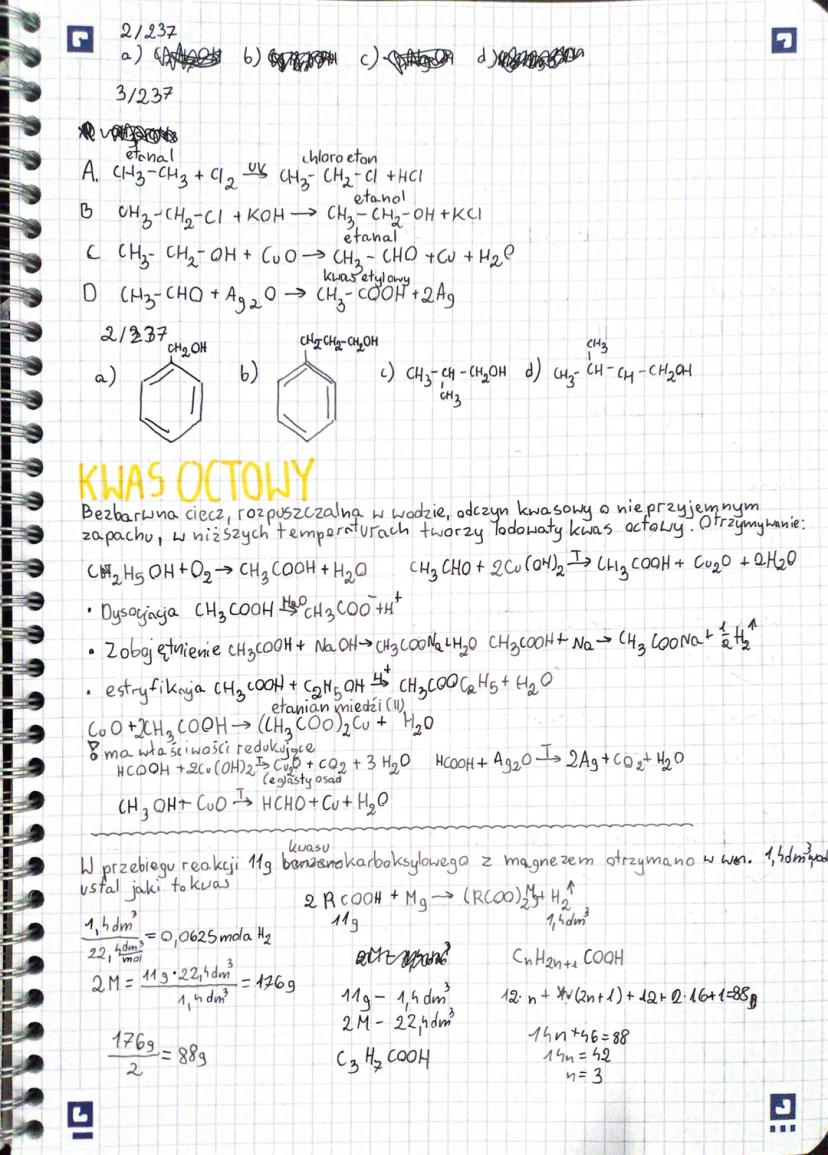 2/237
a) b) c) d)
3/237
etanal chloroetan
A. CH₃-CH₃ + Cl₂ UV→ CH₃-CH₂-Cl + HCl
etanol
B CH₃-CH₂-Cl + KOH → CH₃-CH₂-OH + KCl
etanal
C CH₃-CH₂-OH + CuO → CH₃-CHO + Cu + H₂O
kwas etylowy
D CH₃-CHO + Ag₂O → CH₃-COOH + 2Ag
2/237
a) CH₂OH b) CH₂-CH₂-CH₂OH c) CH₃-CH-CH₂OH d) CH₃-CH-CH-CH₂OH
CH₃ CH₃
KWAS OCTOWY
Bezbarwna ciecz, rozpuszczalna w wodzie, odczyn kwasowy o nieprzyjemnym
zapachu, w niższych temperaturach tworzy lodowaty kwas octowy. Otrzymywanie:
CH₂H₅OH + O₂ → CH₃COOH + H₂O CH₃CHO + 2Cu(OH)₂ T→ CH₃COOH + Cu₂O + 2H₂O
• Dysocjacja CH₃COOH H₂O→ CH₃COO⁻ + H⁺
• Zobojętnienie CH₃COOH + NaOH → CH₃COONa + H₂O CH₃COOH + Na → CH₃COONa + ½H₂↑
• estryfikacja CH₃COOH + C₂H₅OH H⁺→ CH₃COOC₂H₅ + H₂O
etanian miedzi (II)
CuO + 2CH₃COOH → (CH₃COO)₂Cu + H₂O
! ma właściwości redukujące
HCOOH + 2Cu(OH)₂ T→ Cu₂O + CO₂ + 3H₂O HCOOH + Ag₂O T→ 2Ag + CO₂ + H₂O
ceglasty osad
CH₃OH + CuO T→ HCHO + Cu + H₂O
kwasu
W przebiegu reakcji 11g karboksylowego z magnezem otrzymano w wn. 1,4dm³
ustal jaki to kwas
2 RCOOH + Mg → (RCOO)₂Mg + H₂↑
11g 1,4dm³
1,4dm³ / 22,4 dm³/mol = 0,0625 mola H₂
CₙH₂ₙ₊₁COOH
2M = 11g · 22,4dm³ / 1,4dm³ = 176g
11g – 1,4dm³ 12·n + 1(2n+1) + 12 + 2·16 + 1 = 88g
2M – 22,4dm³
176g / 2 = 88g C₃H₇COOH
14n + 46 = 88
14n = 42
n = 3